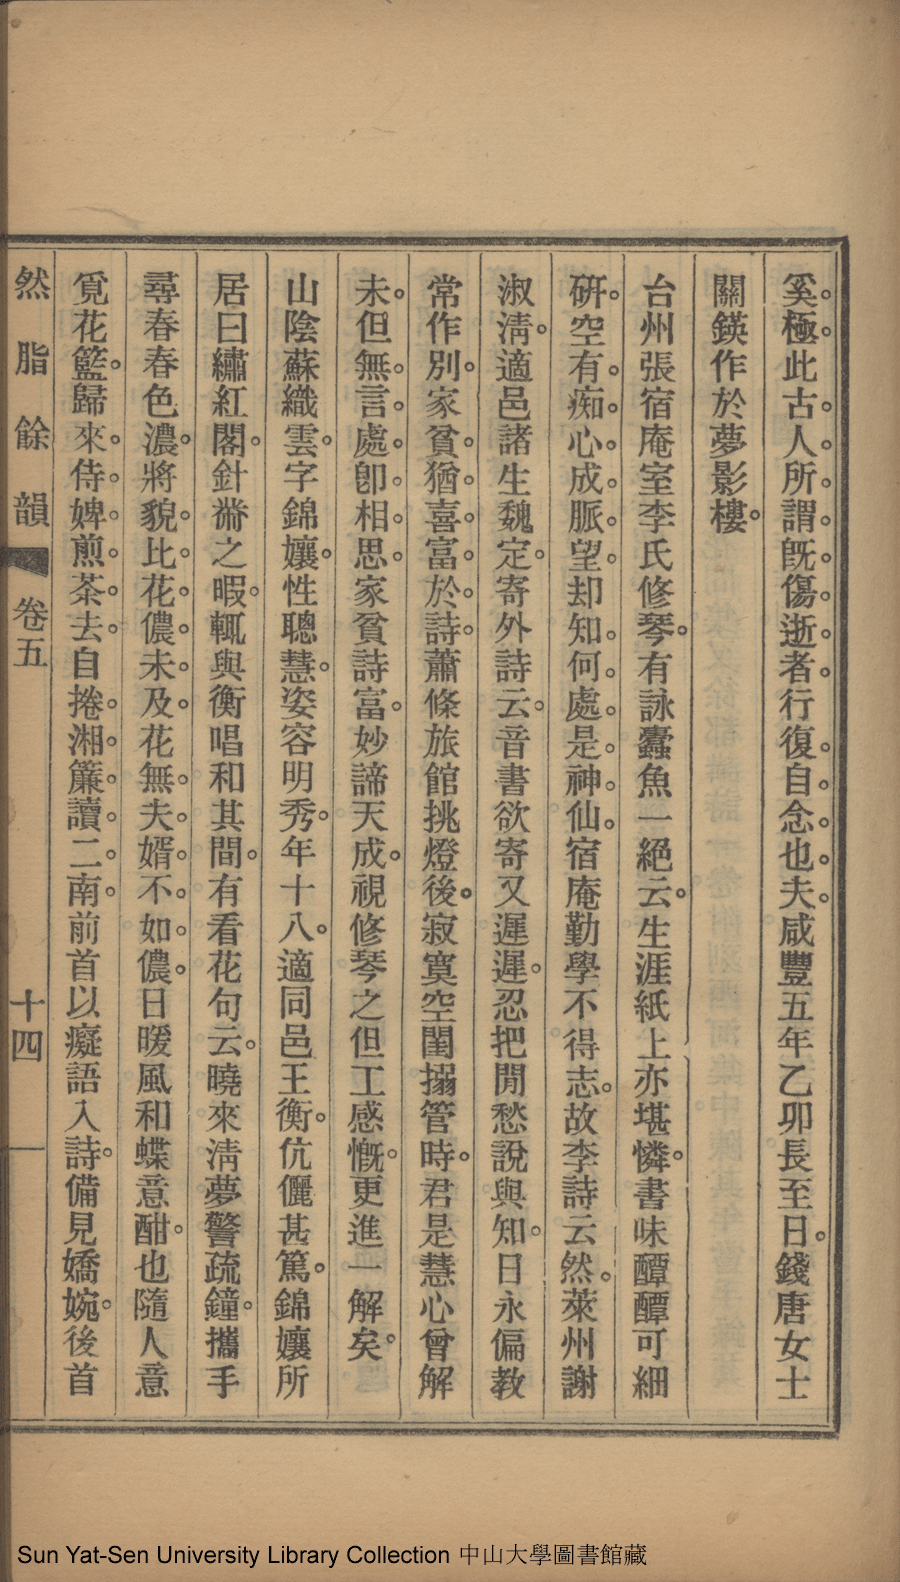 奚極此古人所謂旣傷逝者行復自念也夫咸豐五年乙卯長至日錢唐女士
關鍈作於夢影樓
台州張宿庵室李氏修琴有詠蠹魚一絕云生涯紙上亦堪憐書味醰醰可細
研空有痴心成脈望却知何處是神仙宿庵勤學不得志故李詩云然萊州謝
淑淸適邑諸生魏定寄外詩云音書欲寄又遲遲忍把閒愁說與知日永偏教
常作別家貧猶喜富於詩蕭條旅館挑燈後寂寞空閨搦管時君是慧心曾解
未但無言處卽相思家貧詩富妙諦天成視修琴之但工感慨更進一解矣
山陰蘇織雲字錦孃性聰慧姿容明秀年十八適同邑王衡伉儷甚篤錦孃所
居曰繡紅閣針黹之暇輒與衡唱和其間有看花句云曉來淸夢警疏鐘攜手
尋春春色濃將貌比花儂未及花無夫婿不如儂日暖風和蝶意酣也隨人意
覓花籃歸來侍婢煎茶去自捲湘簾讀二南前首以癡語入詩備見嬌婉後首
然脂餘韻 卷五 十四
Sun Yat-Sen University Library Collection 中山大學圖書館藏